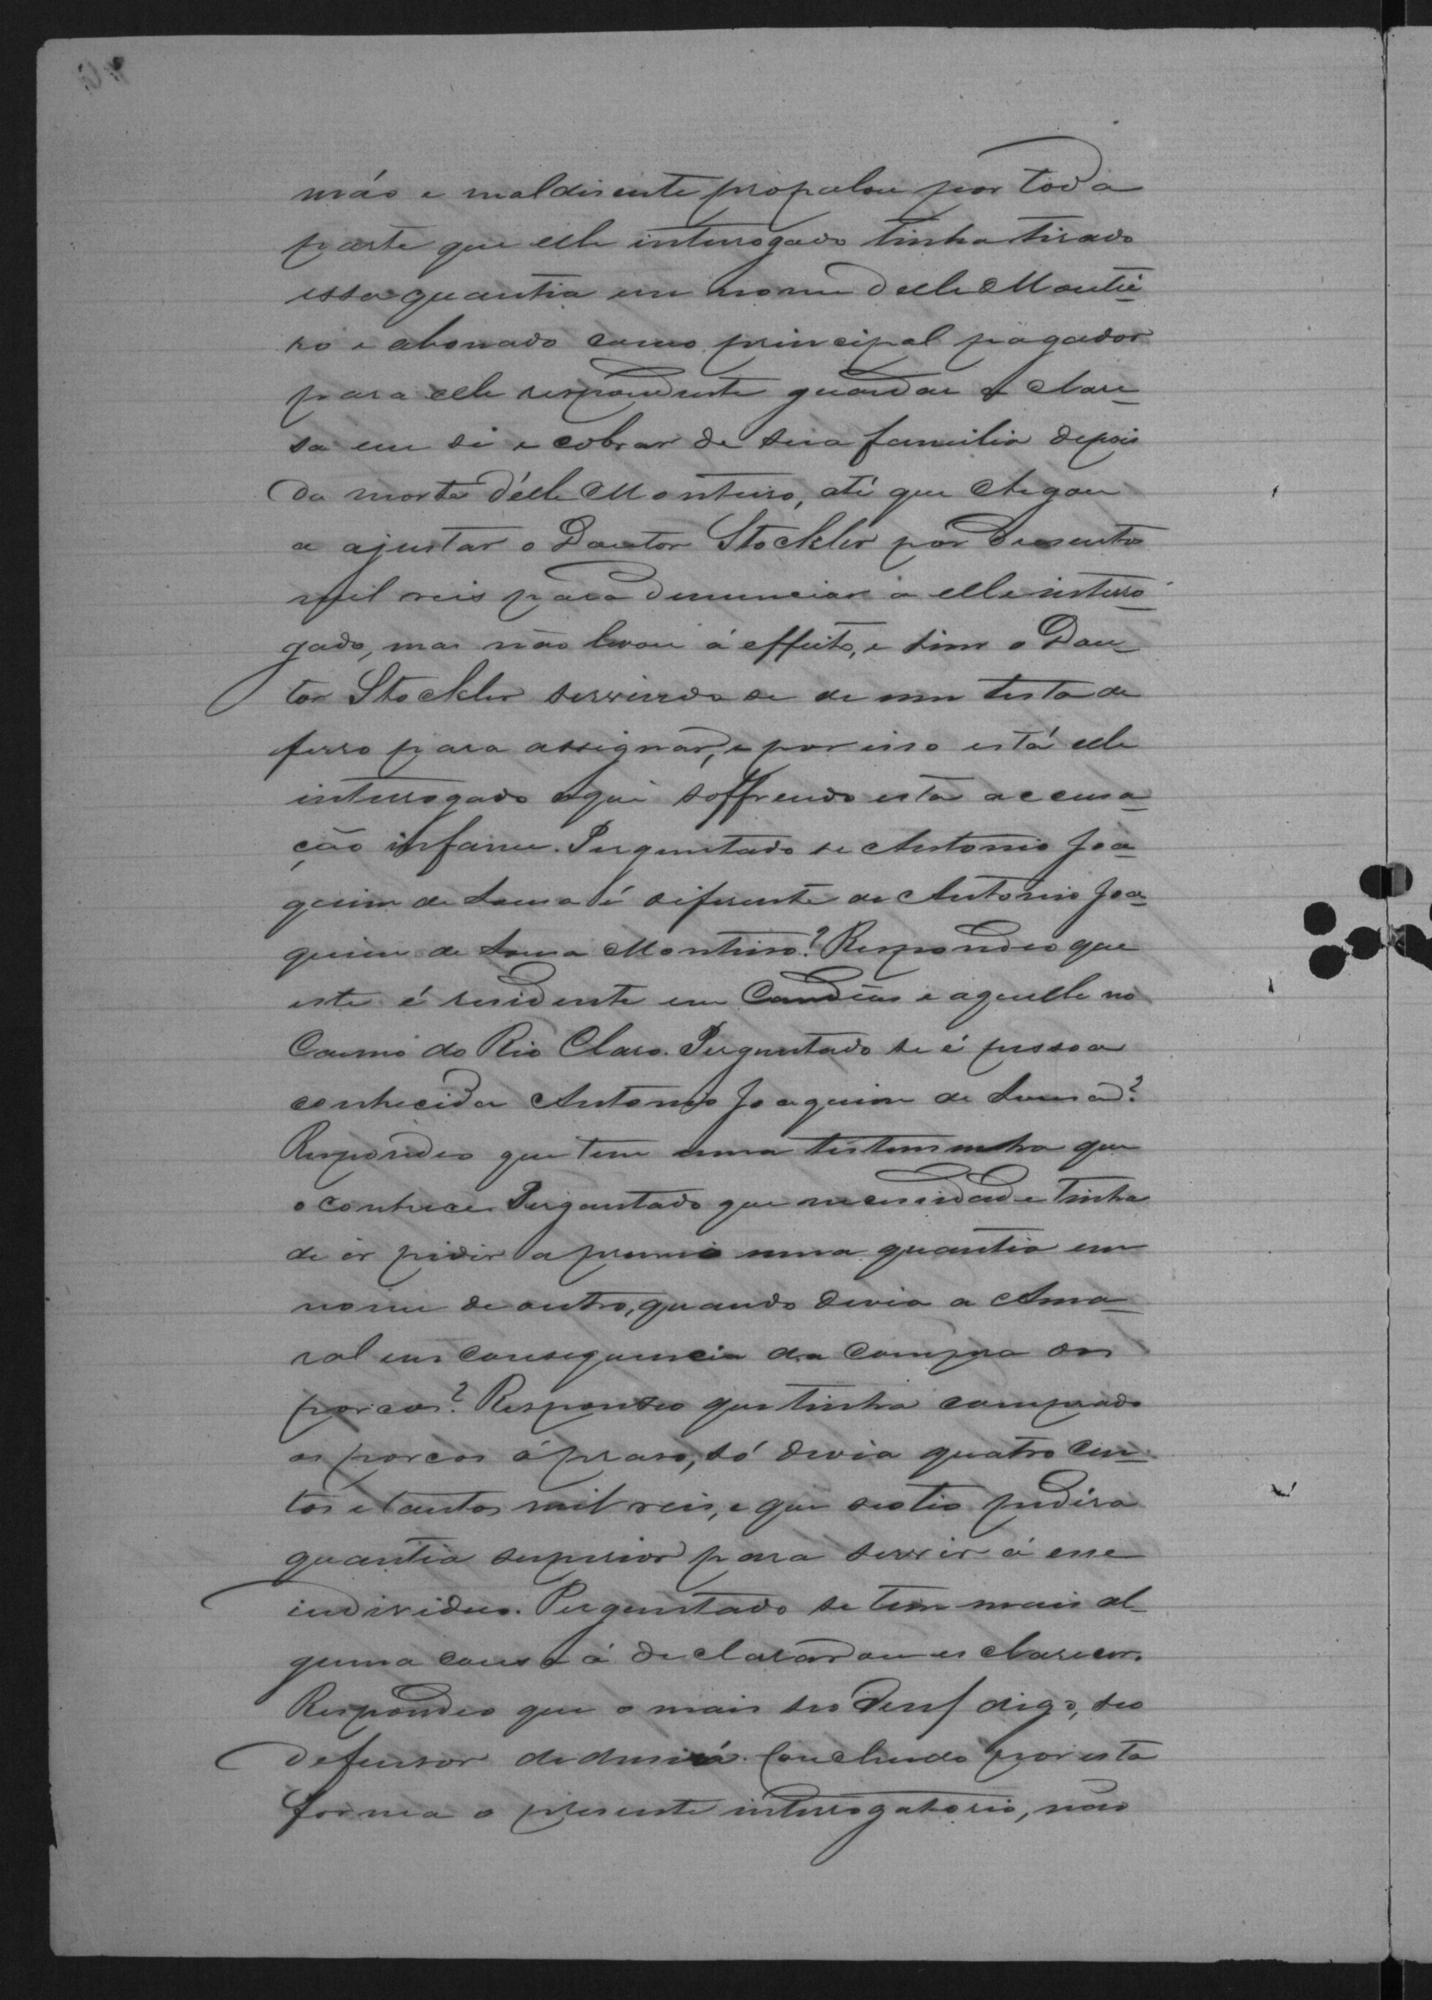 máo e maldisente propalou por toda
parte que elle interrogado tinha tirado
essa quantia em nome delle Montei-
ro e abonado como principal pagador
para elle respondente guardar a clare-
sa em si e cobrar de sua familia depois
da morte d'elle Monteiro, até que chegou
a ajustar o Doutor Stockler por dusentos
mil reis para denunciar a elle interro-
gado, mas não levou á effeito, e sim o Dou-
tor Stockler servindo se de um testa de
ferro para assignar, e por isso está elle
interrogado aqui soffrendo esta accusa-
ção infame. Perguntado se Antonio Joa-
quim de Sousa é diferente de Antonio Joa-
quim de Sousa Monteiro? Respondeo que
este é residente em Candêas e aquelle no
Carmo do Rio Claro. Perguntado se é pessoa
conhecida Antonio Joaquim de Sousa?
Respondeo que tem uma testemunha que
o conhece. Perguntado que necessidade tinha
de ir pidir a premio uma quantia em
nome de outro, quando devia a Ama-
ral em consequencia da compra dos
porcos? Respondeo que tinha comprado
os porcos á praso, só devia quatro cen-
tos e tantos mil reis, e que seo tio pidira
quantia superior para servir á esse
individuo. Perguntado se tem mais al-
guma cousa á declarar ou esclarecer.
Respondeo que o mais seo Deuf digo, seo
defensor dedusirá. Concluido por esta
forma o presente interrogatorio, não